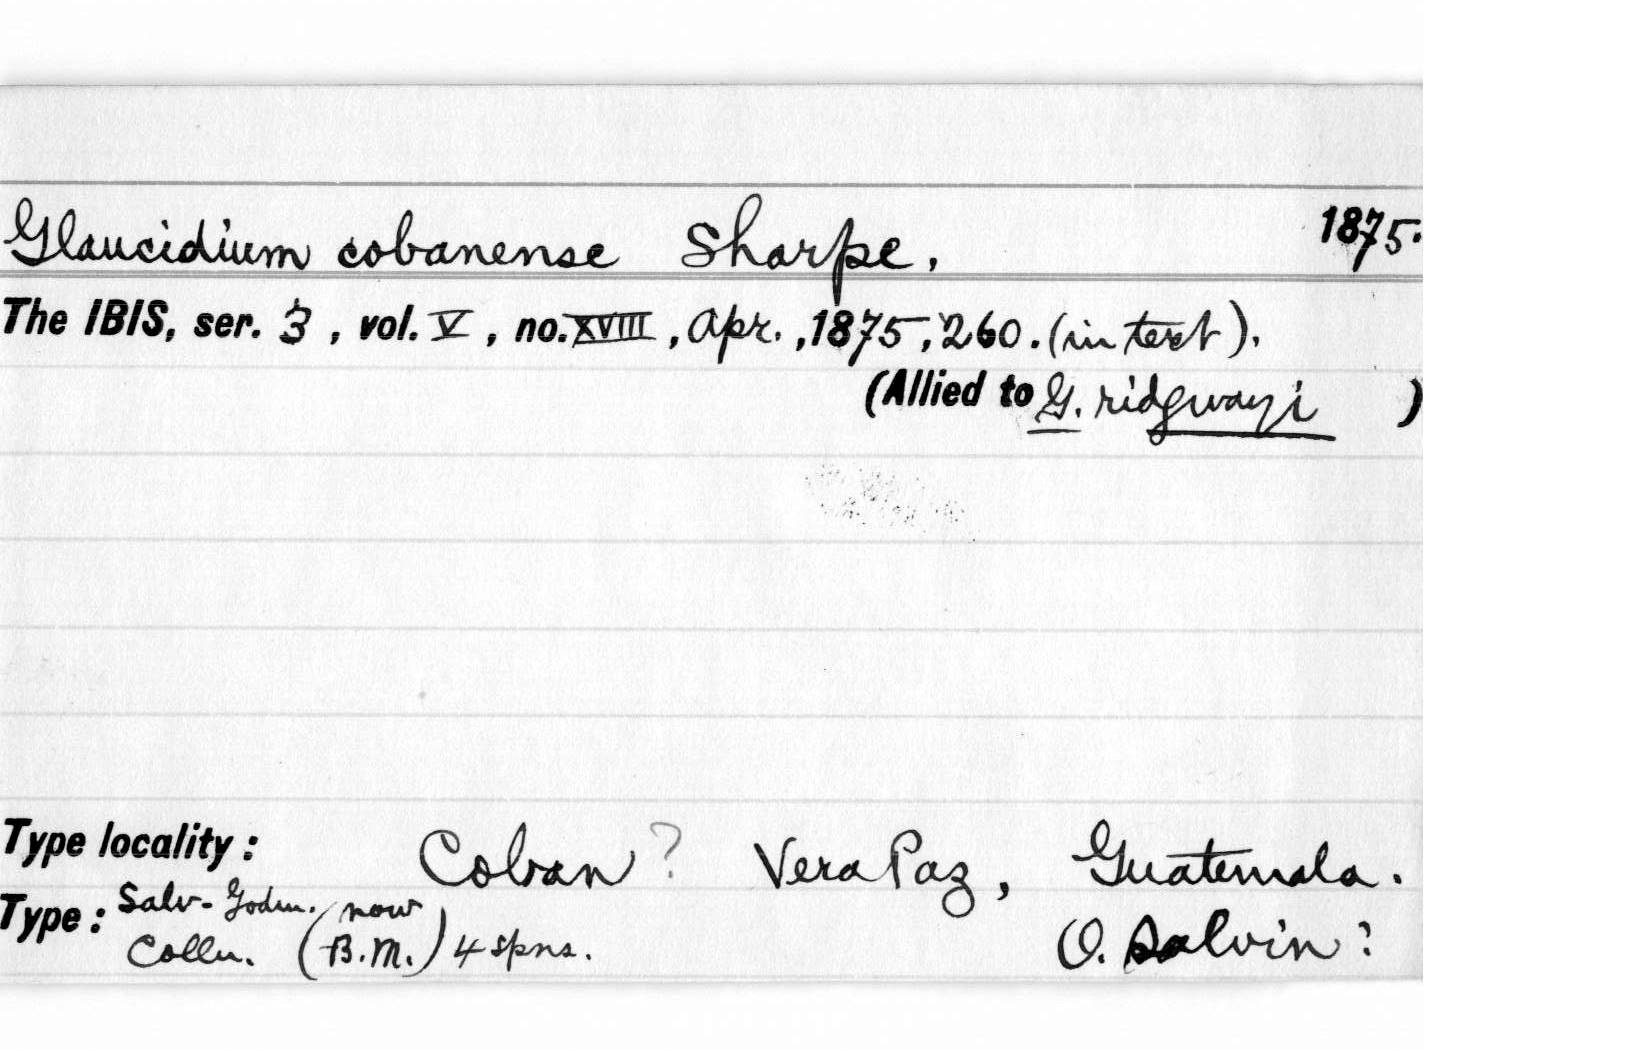 Glaucidium cobanense Sharpe, 1875.
The IBIS, ser. 3, vol. V, no. XVIII, Apr., 1875, 260. (in text).
(Allied to G. ridgwayi )
Type locality: Coban? Vera Paz, Guatemala.
Type: Salv-Godm. (now
Colln. B.M.) 4 spns. O. Salvin?